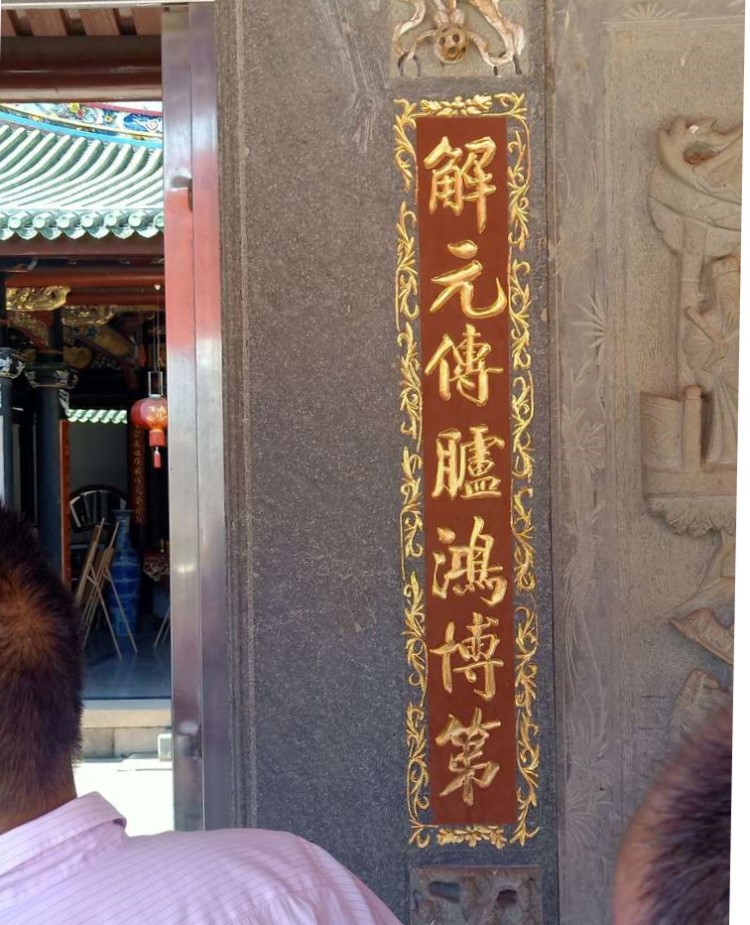 解元傳臚鴻博第